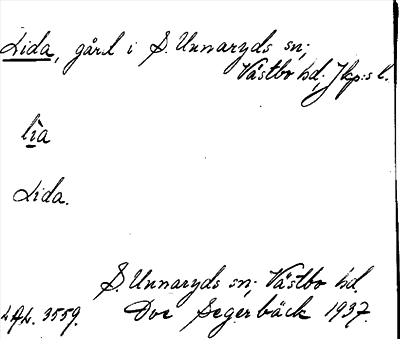 Lida, gård i S. Unnaryds sn;
Västbo hd; Jkp:s l.
lìa
Lida.
S. Unnaryds sn; Västbo hd.
LAL. 3559. Dve Segerbäck 1937.